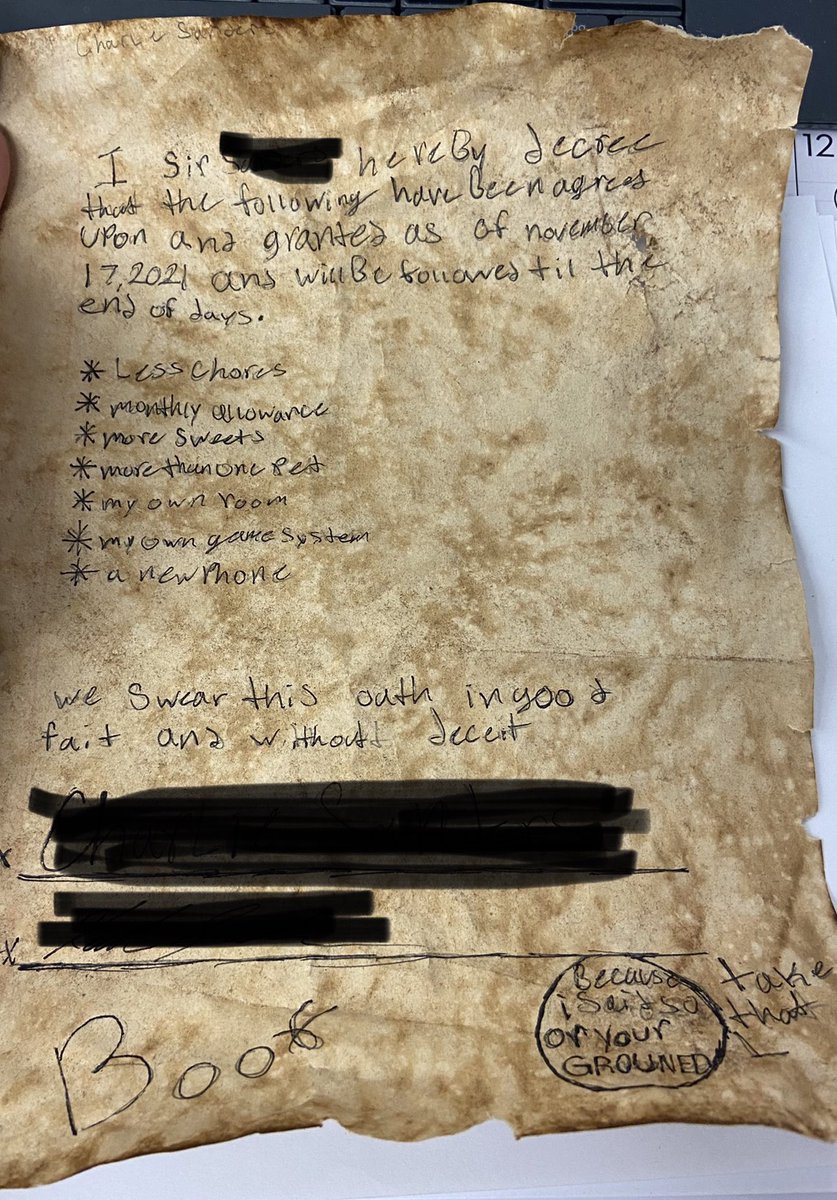 Charlie
I Sir hereBy decree
that the following have Been agreed
upon and granted as of november
17, 2021 and will Be followed til the
end of days.
* Less chores
* monthly allowance
* more sweets
* more than one Pet
* my own room
* my own game system
* a new Phone
we swear this oath in good
fait and without deceit
x
x
Boo
Because
i said so
or your
GROUNED
take
that
12